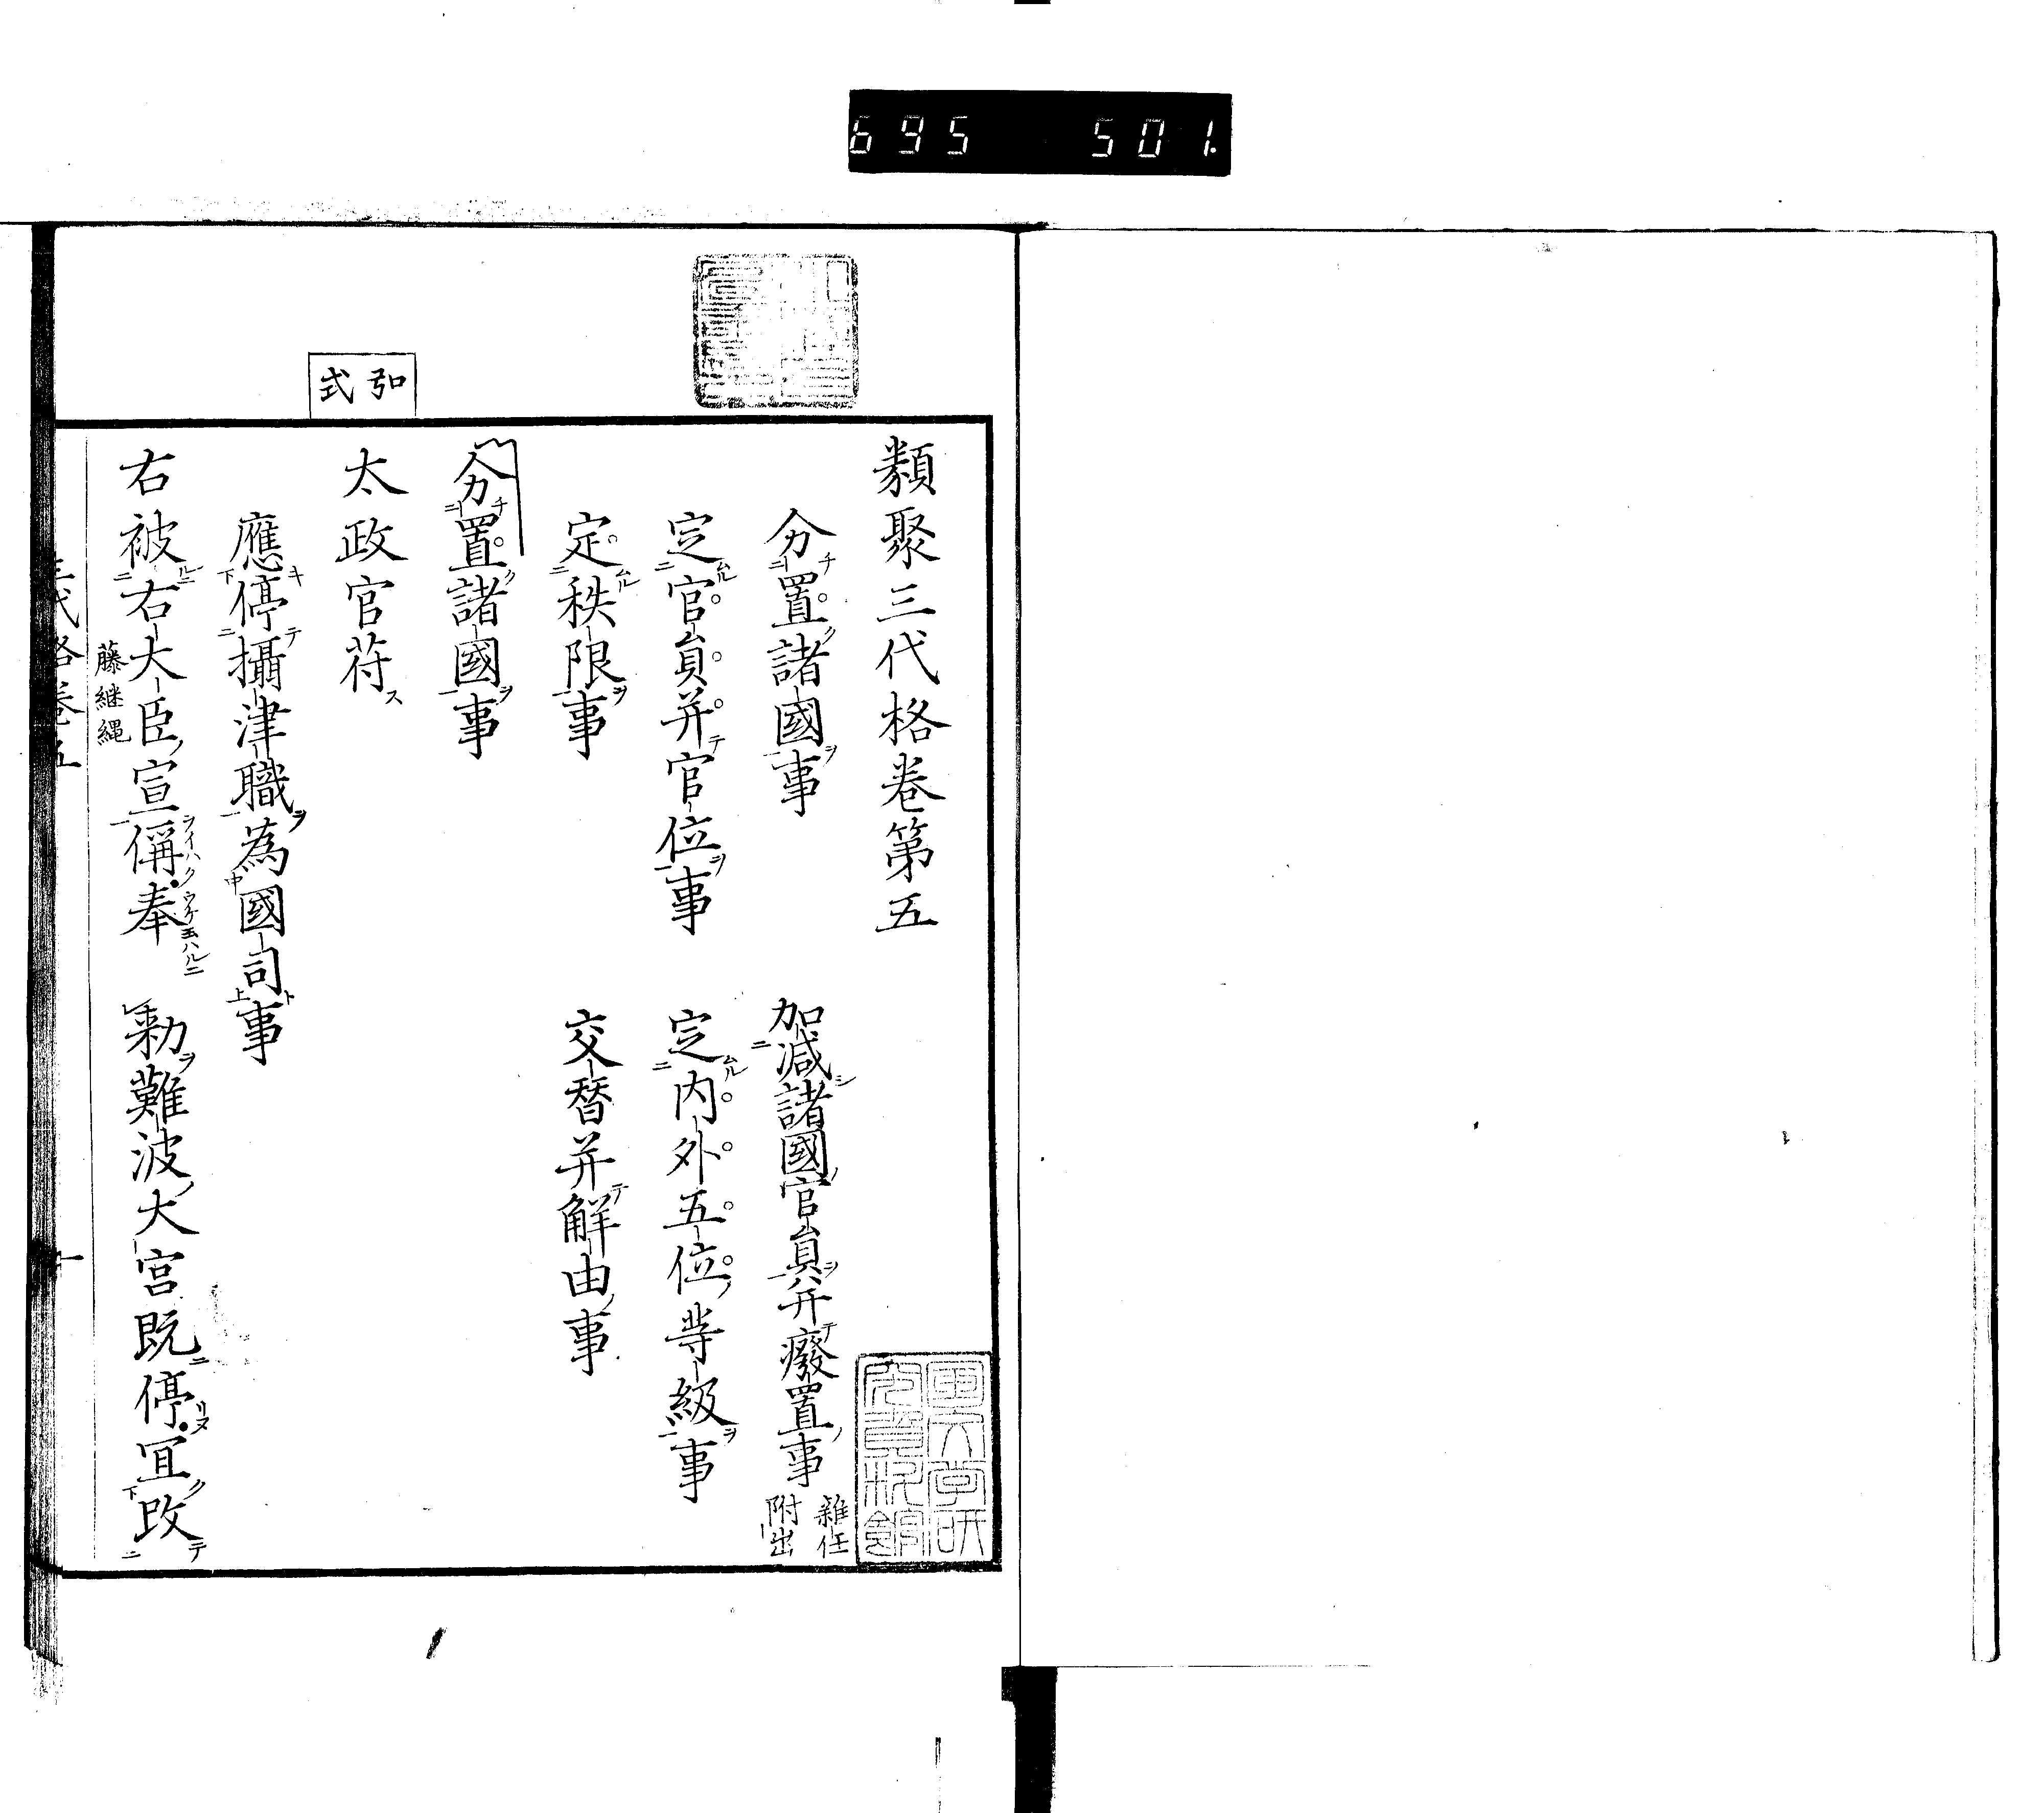 695 501.
類聚三代格卷第五
分置諸國事 加減諸國官員并廢置事 雜任附出
定官員并官位事 定内外五位等級事
定秩限事 交替并解由事
分置諸國事
弘式
太政官符ス
應停攝津職為國司事
右被右大臣宣偁奉 勅難波大宮既停宜改
藤継縄
三代格卷五 一